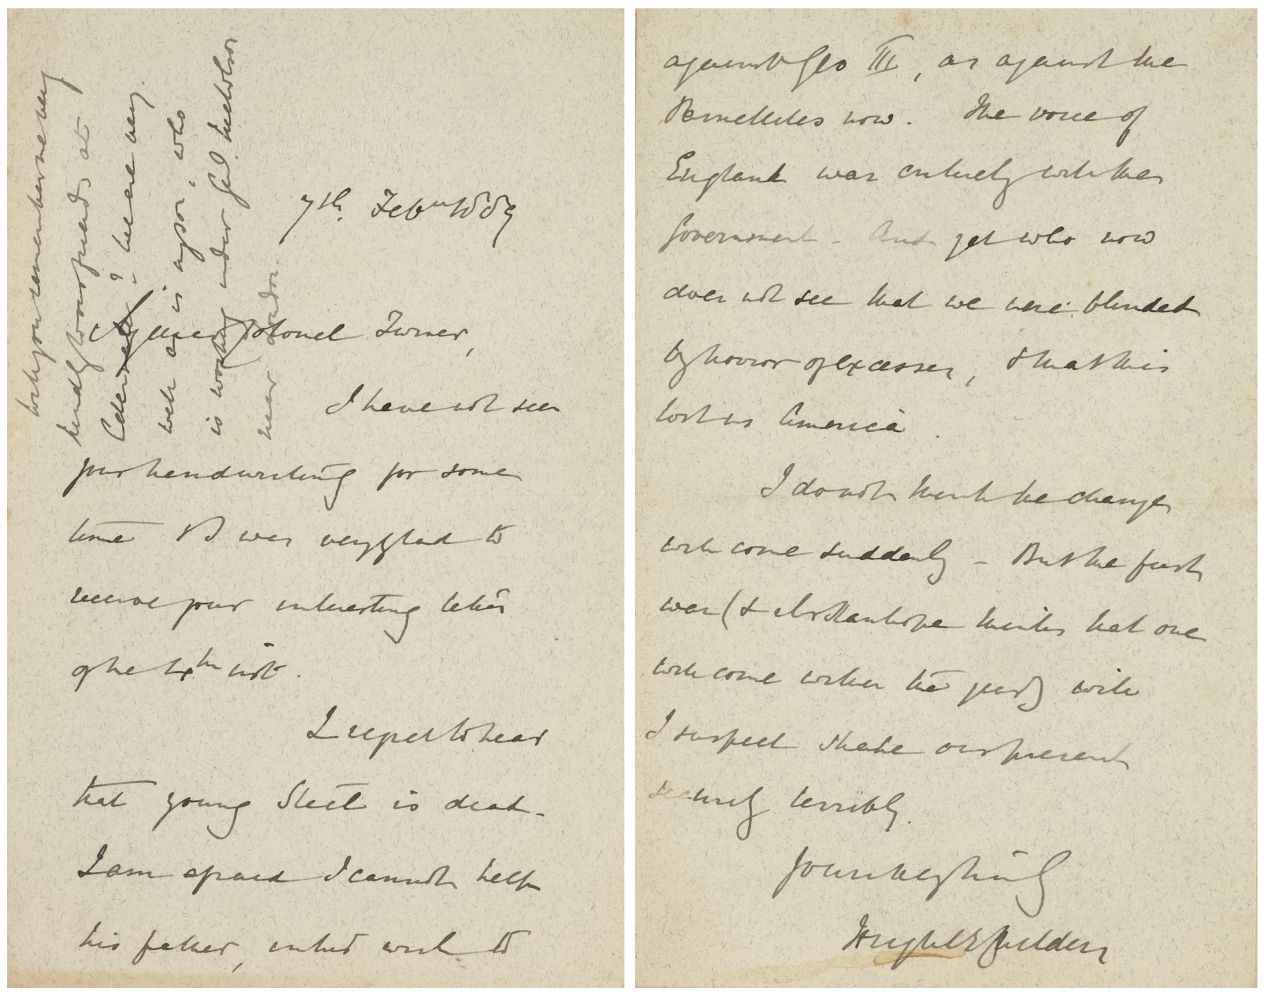 7th. Feby 1889
My dear Colonel Turner,
I have not seen
your handwriting for some
time & was very glad to
receive your interesting letter
of the 4th inst.
I regret to hear
that young Steel is dead.
I am afraid I cannot help
his father, in his wish to
will you remember me very
kindly to our friends at
we are very
well as is my son, who
is working under Genl. Nicholson
near London.
against Geo III, as against the
Parnellites now. The voice of
England was entirely with the
Government. And yet who now
does not see that we were blinded
by horror of excesses, & that this
lost us America.
I do not think the change
will come suddenly - But the first
war (& Mr Stanhope thinks that one
will come within the year) will
I suspect shake our present
security terribly.
Yours very truly